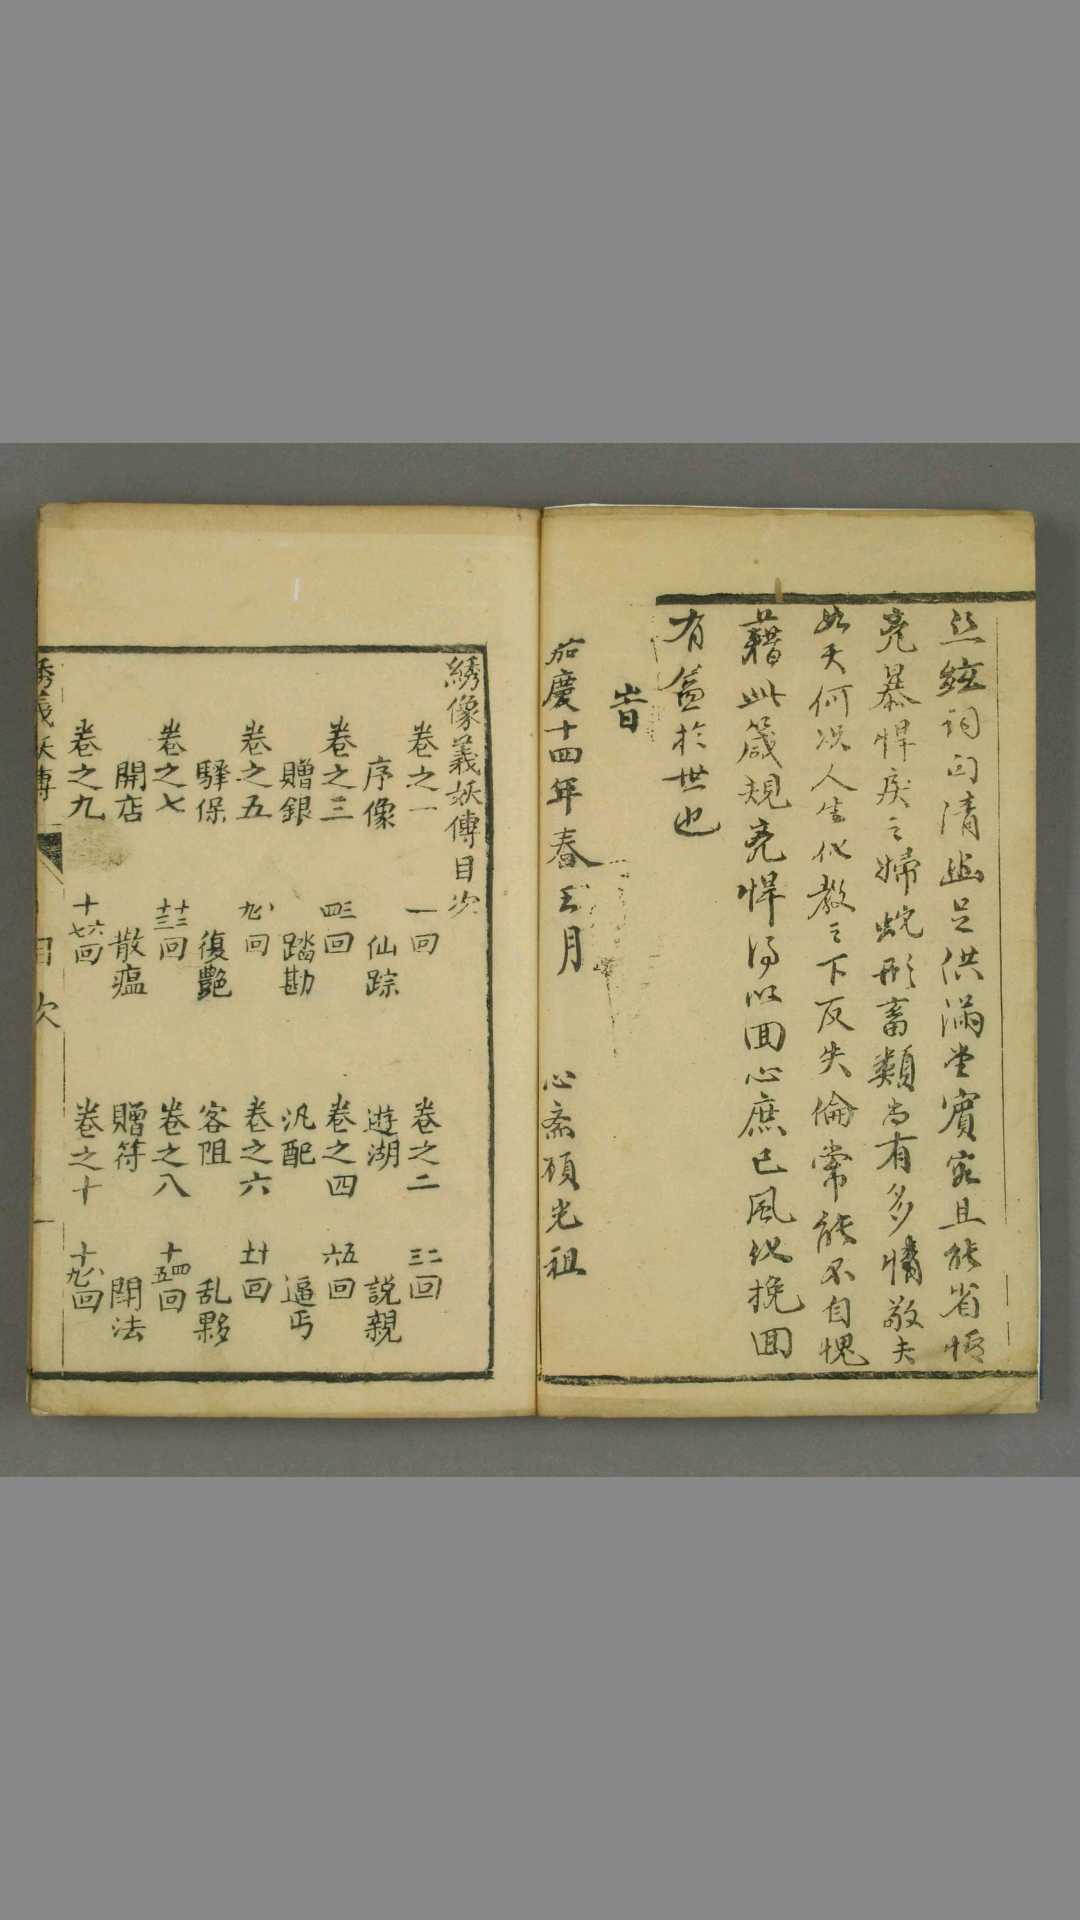 丝絃詞句清幽足供滿堂賓客且能省悟
兇暴悍戾之婦蛇形畜類尚有多情敬夫
如天何况人生化教之下反失倫常能不自愧
藉此箴規兇悍得以囬心庶已風化挽囬
有益於世也
旹
嘉慶十四年春王月 心斋顧光祖
綉像義妖傳目次
卷之一 一回 卷之二 二三回
序像 仙踪 遊湖 説親
卷之三 三四回 卷之四 五六回
贈銀 踏勘 汎配 逼丐
卷之五 八九回 卷之六 十回
驛保 復艷 客阻 乱夥
卷之七 十二十三回 卷之八 十四五回
開店 散瘟 贈符 鬧法
卷之九 十六七回 卷之十 十八九回
綉義妖傳 目次 一